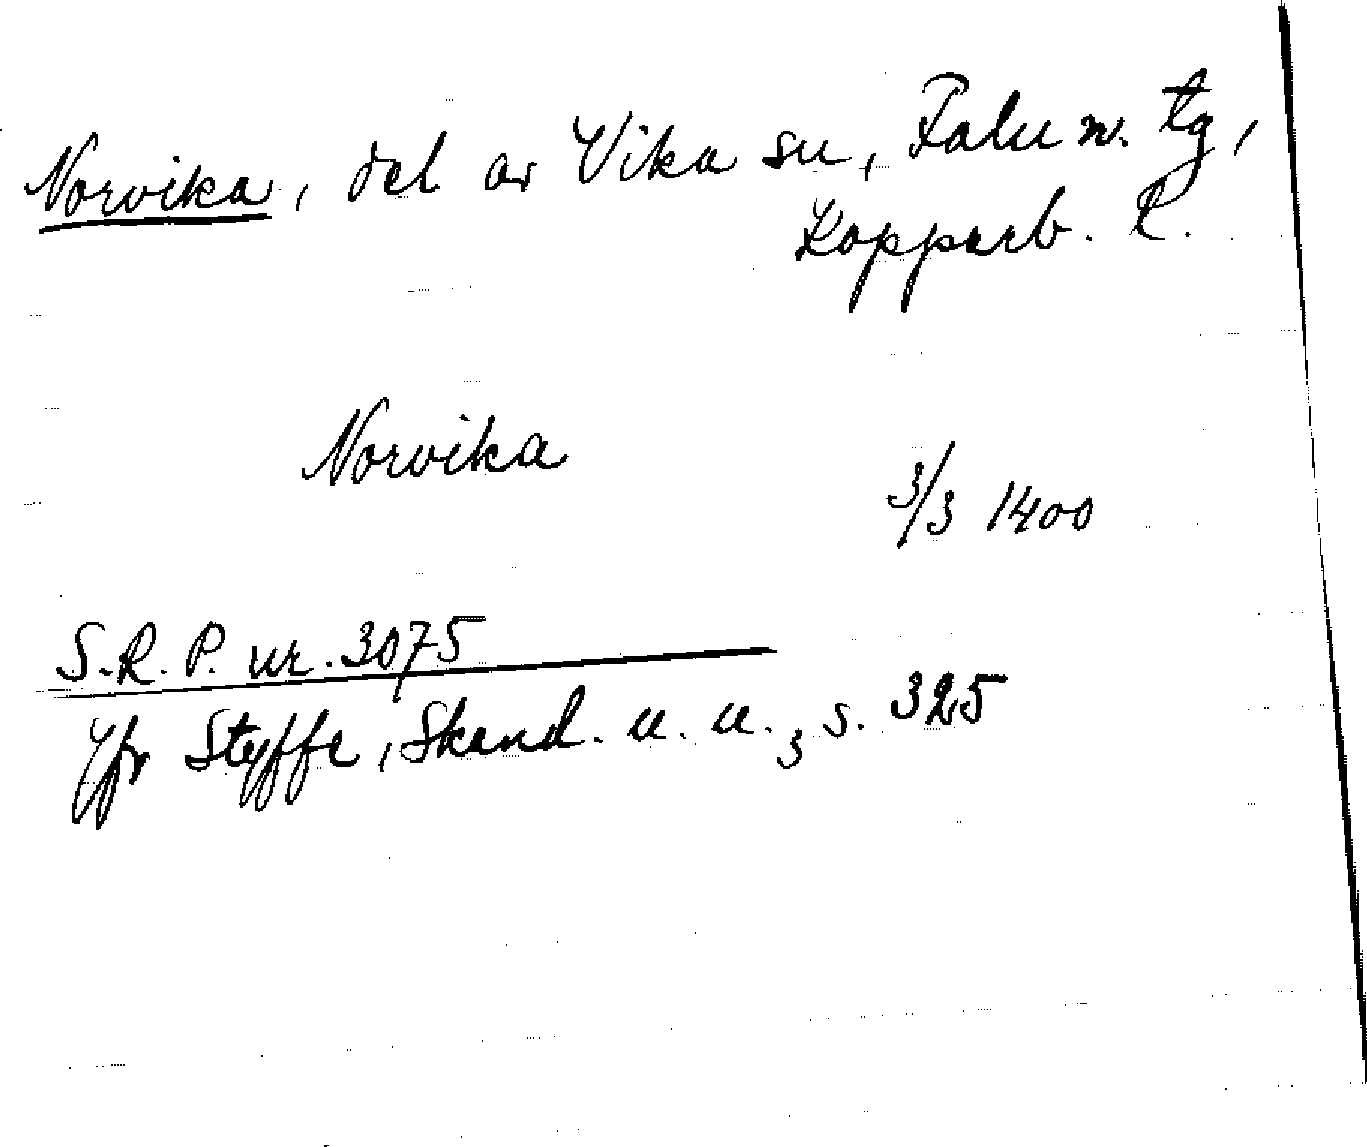 Norvika, del av Vika sn, Falu n. tg,
Kopparb. l.
Norvika
3/3 1400
S.R.P. nr. 3075
Jfr Styffe, Skand. u. u.3 s. 325